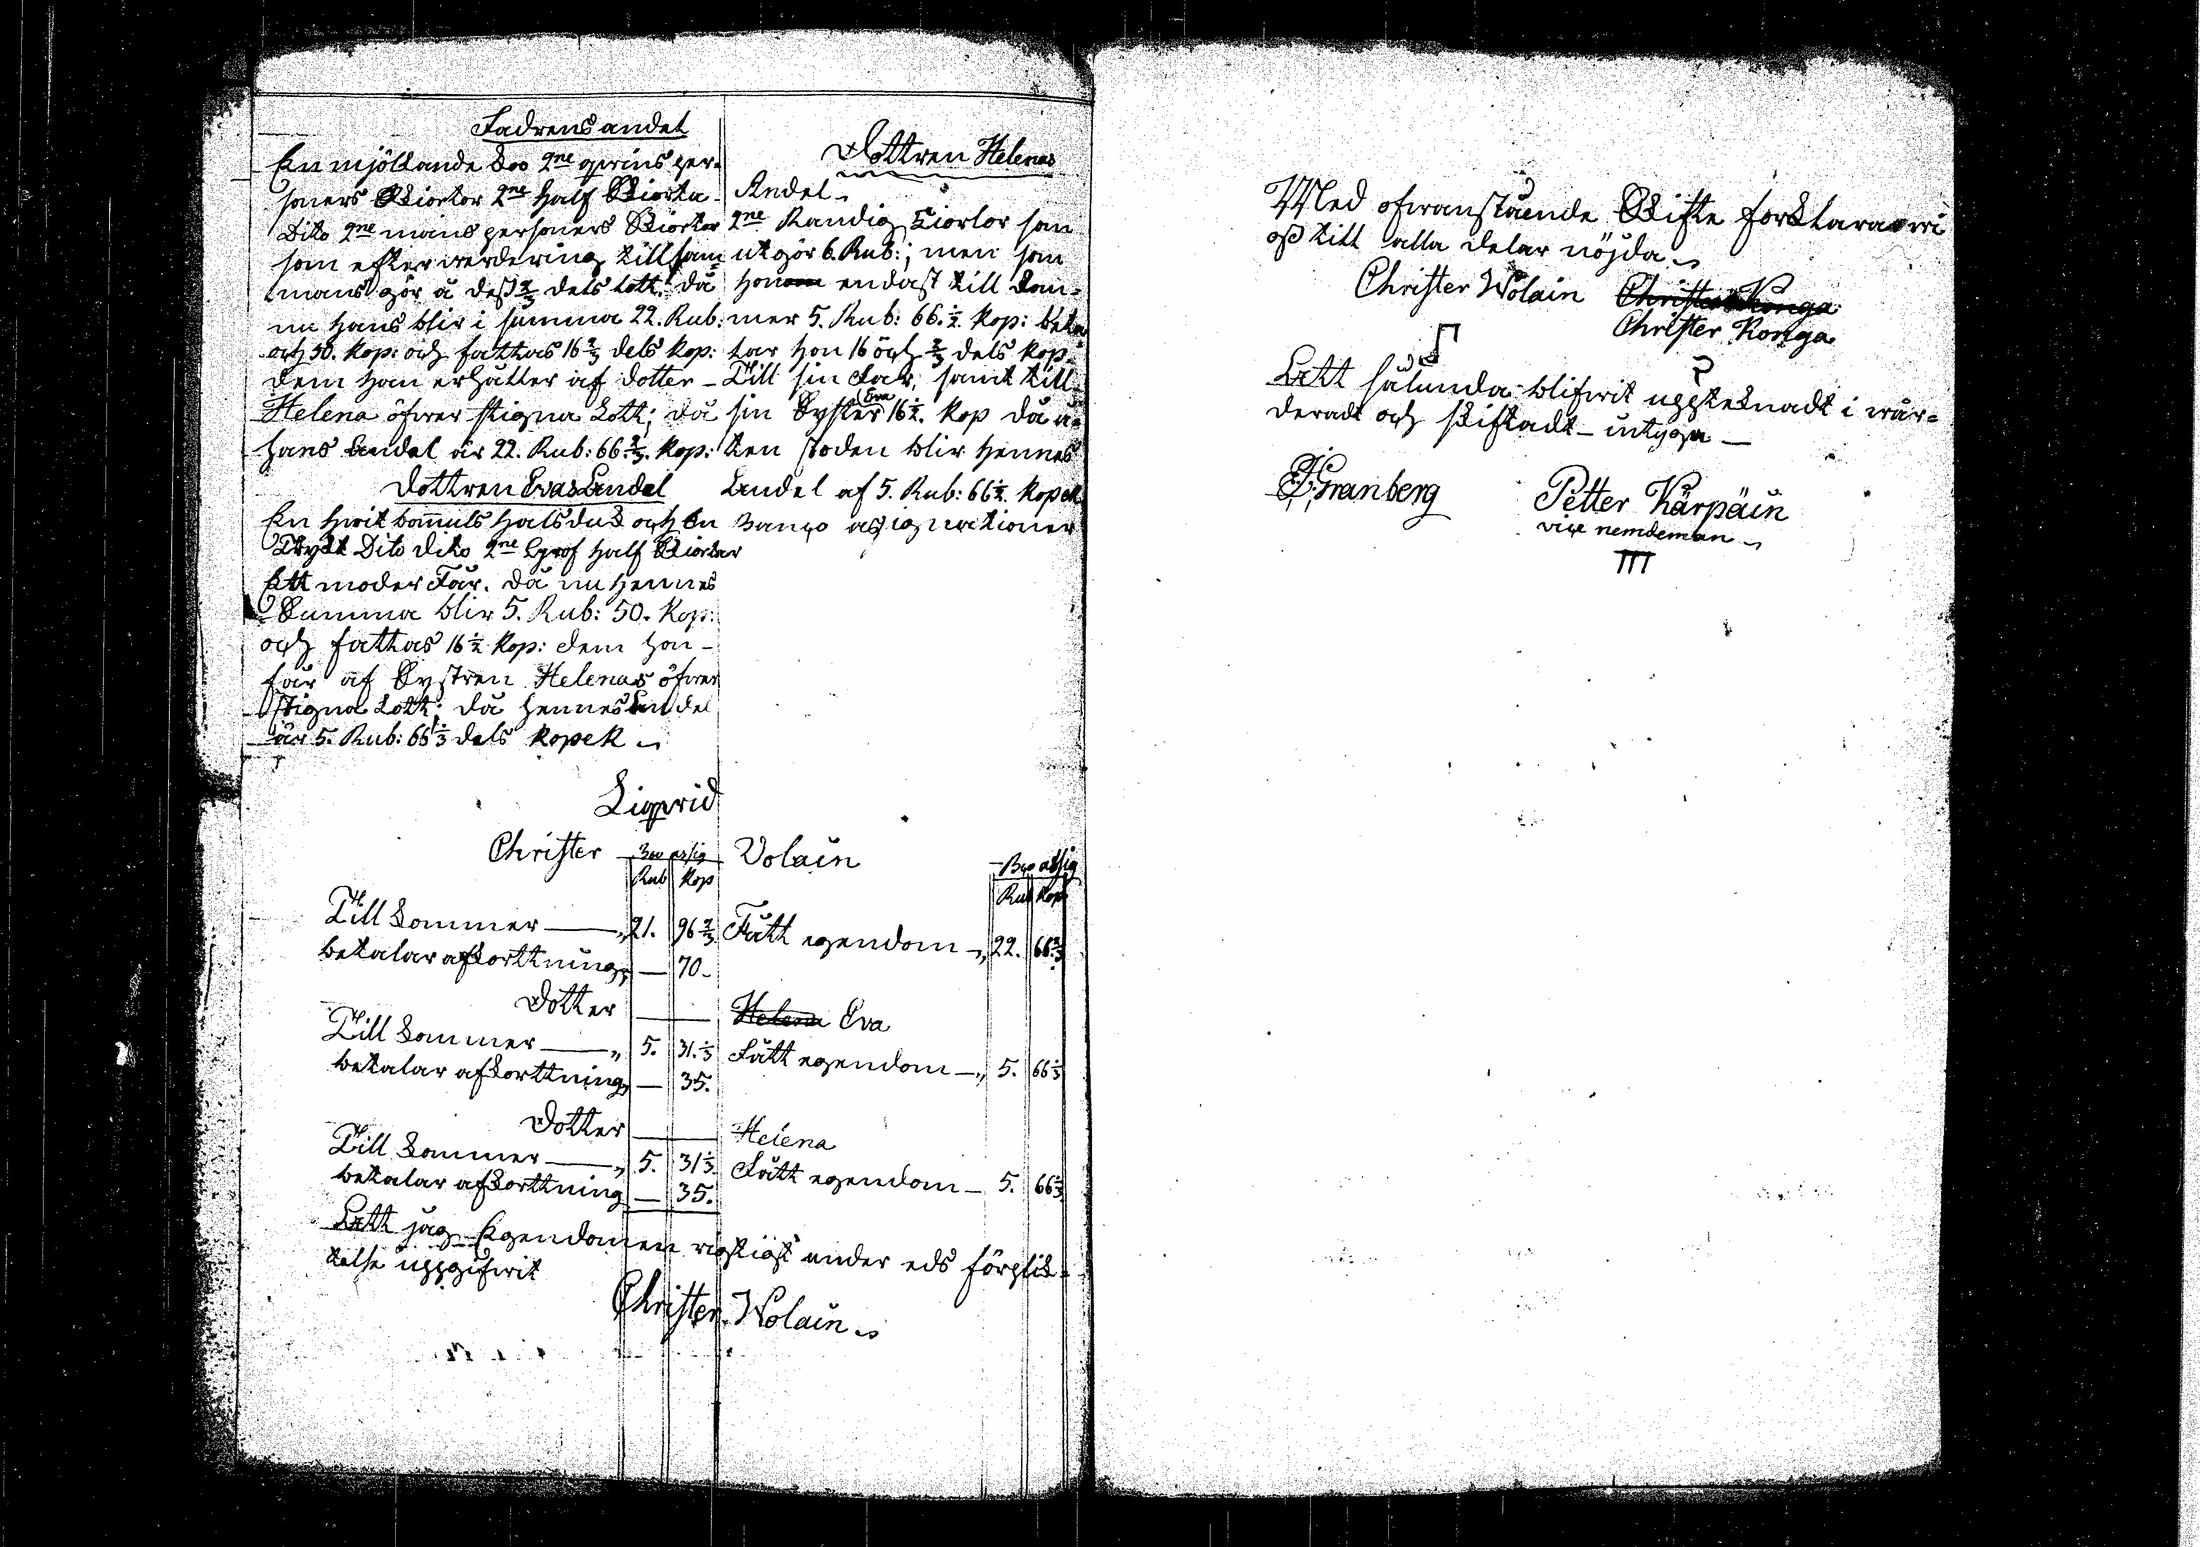 Fadrens andel
En mjölkande Koo 2ne qvins per-
soners Skiortor 2ne half Skiorta
Dito 2ne mans personers Skiortor
som efter werdering tillsam-
mans gör å dess 2/3 dels lott. då
nu hans blir i summa 22. Rub:
och 50. kop: och fattas 16 2/3 dels kop:
dem han erhåller af dotter
Helena öfwer stigna Lott; då
hans Andel är 22. Rub: 66 2/3. kop:
Dottren Evas Andel
En hwit bomuls halsduk och En
Tryckt Dito dito 2ne Grof half Skiortor
Ett moder Får. då nu hennes
Summa blir 5. Rub: 50. kop:
och fattas 16 1/2 kop: dem hon
får af Systren Helenas öfwer
stigna Lott; då hennes Andel
är 5. Rub: 66 1/3 dels kopek
Dottren Helenas
Andel
2ne Randig Kiortlor som
utgör 6. Rub:; men som
hon endast till kom-
mer 5. Rub: 66. 1/2. kop: beta
lar hon 16 och 2/3 dels kop.
Till sin Far, samt till
sin Syster Eva 16 1/2. kop då å
ter stoden blir hennes
Andel af 5. Rub: 66 1/2 kopek
Banco assignationer
Ligwid
Christer Bco assig Volain Bco assig
Rub kop Rub kop
Till kommer 21. 96 2/3 Fått egendom 22. 66 2/3
betalar afkorttning 70
Dotter Helena Eva
Till kommer 5. 31. 1/3 Fått egendom 5. 66 1/3
betalar afkorttning 35.
Dotter Helena
Till kommer 5. 31 1/3 Fått egendom 5. 66 1/3
betalar afkorttning 35.
Att jag Egendomen rigtigt under eds förplik-
telse uppgifwit
Christer Wolain
Med ofwanstående Skifte forklara wi
oss till alla delar nöjda
Christer Wolain Christer Konga
Christer Konga
Att sålunda blifwit upteknadt i wär-
deradt och skiftadt intyga
Granberg Petter Kärpäin
vice nemdeman